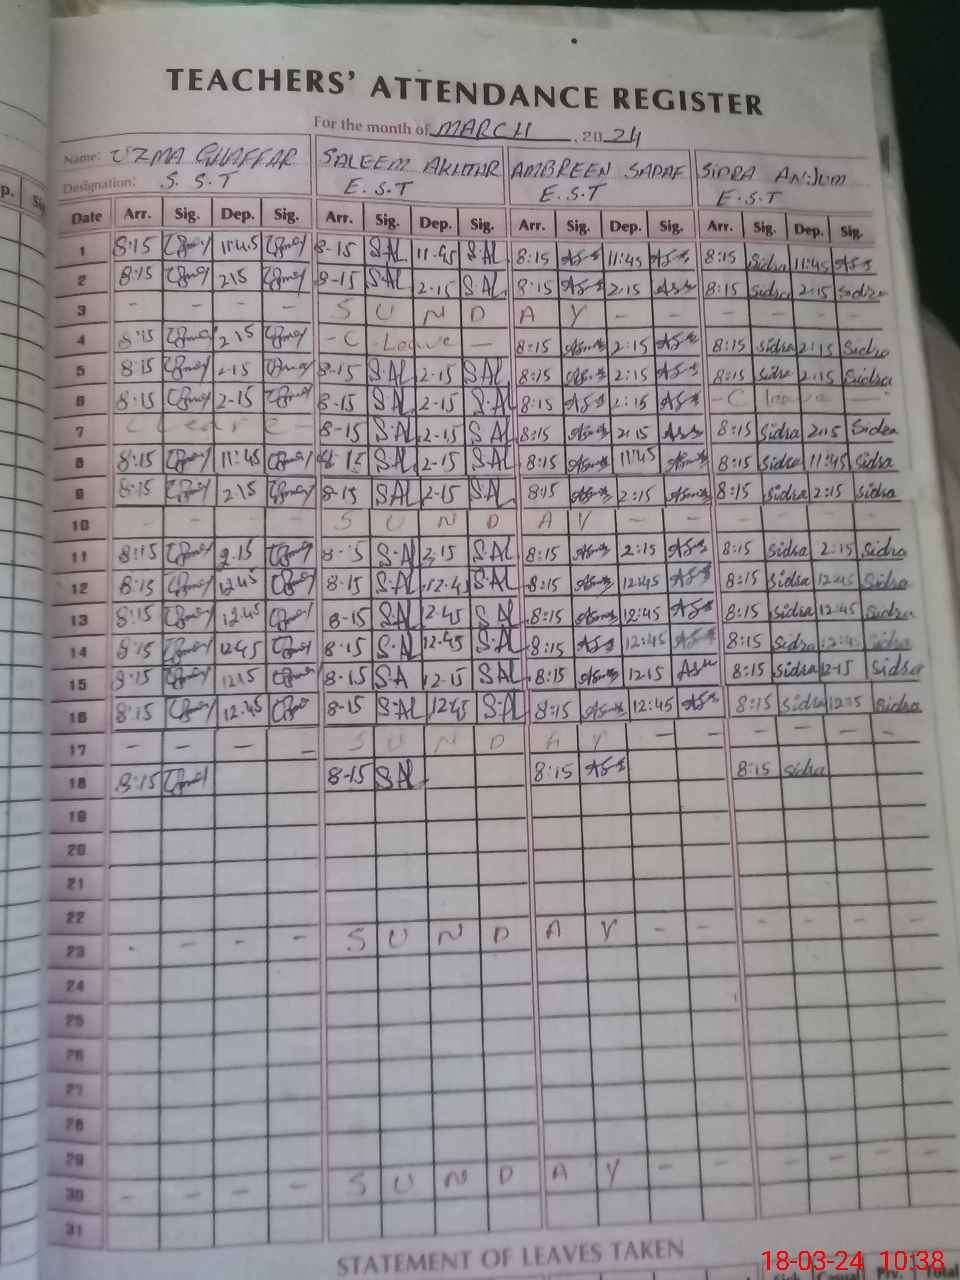 TEACHERS' ATTENDANCE REGISTER
For the month of MARCH , 20 24
Name: UZMA GHAFFAR SALEEM AKHTUR AMBREEN SADAF SIDRA ANJUM
Designation: S.S.T E.S.T E.S.T E.S.T
p. Sig
Date Arr. Sig. Dep. Sig. Arr. Sig. Dep. Sig. Arr. Sig. Dep. Sig. Arr. Sig. Dep. Sig.
1 8:15 11:45 8-15 S.AL 11-45 S.AL 8:15 11:45 8:15 Sidra 11:45
2 8:15 2:15 8-15 S.AL 2-15 S.AL 8:15 2:15 8:15 Sidra 2:15 Sidra
3 - - - - S U N D A Y - - - - - -
4 8:15 2:15 - C. Leave - 8:15 2:15 8:15 Sidra 2:15 Sidra
5 8:15 2-15 8-15 S.AL 2-15 S.AL 8:15 2:15 8:15 Sidra 2:15 Sidra
6 8:15 2-15 8-15 S.AL 2-15 S.AL 8:15 2:15 - C leave -
7 C Leave - 8-15 S.AL 2-15 S.AL 8:15 2:15 8:15 Sidra 2:15 Sidra
8 8:15 11:45 8-15 S.AL 2-15 S.AL 8:15 11:45 8:15 Sidra 11:45 Sidra
9 8:15 2:15 8-15 S.AL 2-15 S.AL 8:15 2:15 8:15 Sidra 2:15 Sidra
10 - - - - S U N D A Y - - - - - -
11 8:15 2:15 8-15 S.AL 2:15 S.AL 8:15 2:15 8:15 Sidra 2:15 Sidra
12 8:15 12:45 8-15 S.AL 12-45 S.AL 8:15 12:45 8:15 Sidra 12:45 Sidra
13 8:15 12:45 8-15 S.AL 12-45 S.AL 8:15 12:45 8:15 Sidra 12:45 Sidra
14 8:15 12:45 8-15 S.AL 12-45 S.AL 8:15 12:45 8:15 Sidra 12:45 Sidra
15 8:15 12:15 8-15 S.A 12-15 S.AL 8:15 12:15 8:15 Sidra 12-15 Sidra
16 8:15 12:45 8-15 S.AL 12:45 S.AL 8:15 12:45 8:15 Sidra Sidra
17 - - - - S U N D A Y - - - - - -
18 8:15 8-15 S.AL 8:15 8:15 Sidra
19
20
21
22
23 - - - - S U N D A Y - - - - - -
24
25
26
27
28
29
30 - - - - S U N D A Y - - - - - -
31
STATEMENT OF LEAVES TAKEN
18-03-24 10:38